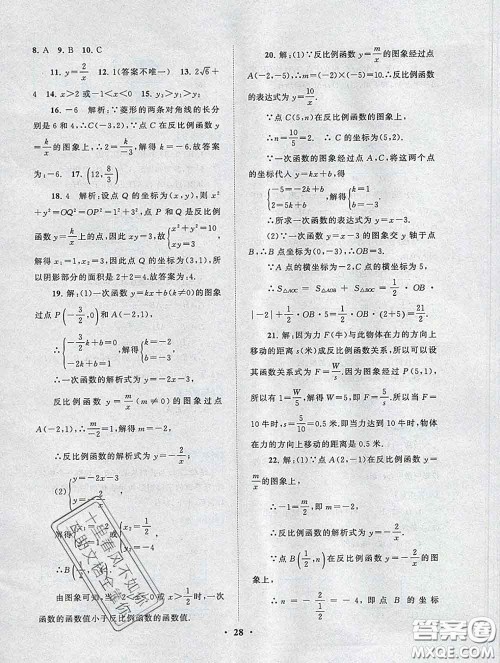 8. A 9. B 10. C
11. y=2/x 12. 1(答案不唯一) 13. 2√6+
4 14. x>2或-1<x<0 15. y₂>y₁>y₃
16. -6 解析:∵菱形的两条对角线的长分
别是6和4,∴C(-3,2),∵点C在反比例函数y=
k/x的图象上,∴2=k/-3,解得k=-6. 故答案
为:-6. 17. (12, 8/3)
18. 4 解析:设点Q的坐标为(x,y),则x²
+y²=OQ²=OP²=1²+3²,因为点Q在反比例
函数y=k/x图象上,所以xy=3,故{x²+y²=10, xy=3.
解得x₁=1,x₂=3,故点Q的坐标为(3,1),所
以阴影部分的面积是2+2=4. 故答案为:4.
19. 解:(1)一次函数y=kx+b(k≠0)的图象
过点P(-3/2,0)和A(-2,1),
∴{-3/2k+b=0, -2k+b=1. 解得{k=-2, b=-3.
∴一次函数的解析式为y=-2x-3
反比例函数y=m/x(m≠0)的图象过点
A(-2,1),∴m/-2=1,解得m=-2,
∴反比例函数的解析式为y=-2/x;
(2){y=-2x-3, y=-2/x.
解得
∴B(1/2,-4)
由图象可知,当-2<x<0或x>1/2时,一
次函数的函数值小于反比例函数的函数值.
20. 解:(1)∵反比例函数y=m/x的图象经过点
A(-2,-5),∴m=(-2)×(-5)=10. ∴反比例函数
的表达式为y=10/x.
∵点C(5,n)在反比例函数的图象上,
∴n=10/5=2. ∴C的坐标为(5,2).
∵一次函数的图象经过点A,C,将这两个点
的坐标代入y=kx+b,得
{-5=-2k+b, 2=5k+b. 解得{k=1, b=-3.
∴所求一次函数的表达式为y=x-3.
(2)∵一次函数y=x-3的图象交y轴于点
B,∴B点坐标为(0,-3). ∴OB=3.
∵A点的横坐标为-2,C点的横坐标为5,
∴S△AOC=S△AOB+S△BOC=1/2·OB·
|-2|+1/2·OB·5=1/2·OB·(2+5)=21/2.
21. 解:因为力F(牛)与此物体在力的方向上
移动的距离s(米)成反比例函数关系,所以可以设
其函数关系为F=W/s. 因为图象过点P(5,1),
所以1=W/5,所以W=5,即F=5/s,所以当F=10
时,s=5/10=0.5(米). 即当力达到10牛时,物体
在力的方向上移动的距离是0.5米.
22. 解:(1)∵点A(-1,2)在反比例函数y=
m/x的图象上,
∴2=m/-1,∴m=-2.
∴反比例函数的解析式为y=-2/x.
∵点B(-4,n)在反比例函数y=-2/x的图象
上,∴n=-2/-4=1/2,∴点B的坐标
28
十里春风不如你
答案圈
MXQE.COM